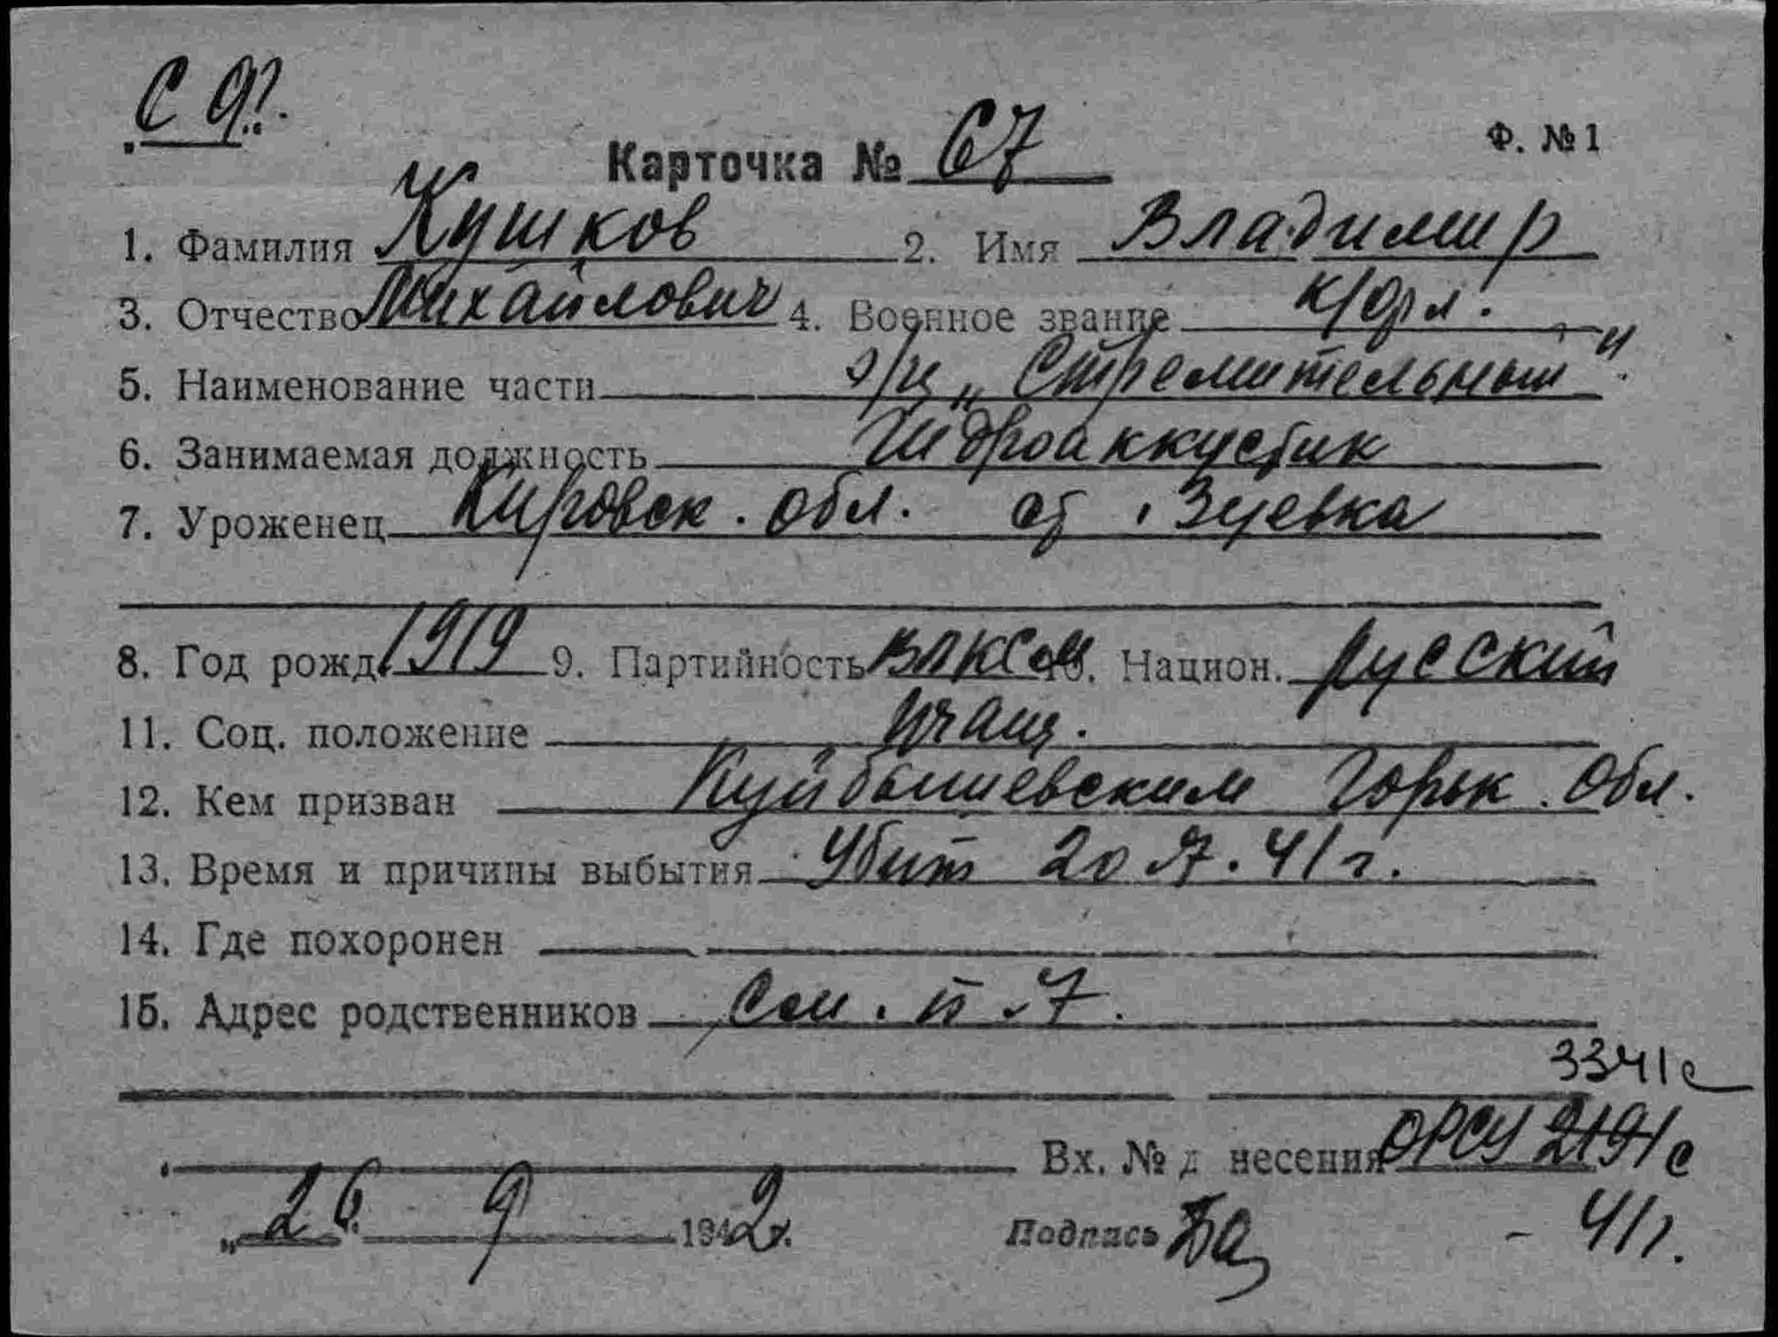 С Ф.
Карточка № 67
Ф. № 1
1. Фамилия Кушков 2. Имя Владимир
3. Отчество Михайлович 4. Военное звание к/фл.
5. Наименование части э/м „Стремительный".
6. Занимаемая должность Гидроаккустик
7. Уроженец Кировск. обл. ст. Зуевка
8. Год рожд. 1919 9. Партийность ВЛКСМ 10. Национ. русский
11. Соц. положение учащ.
12. Кем призван Куйбышевским Горьк. обл.
13. Время и причины выбытия Убит 20.7.41 г.
14. Где похоронен
15. Адрес родственников См. п. 7.
3341с
Вх. № д несения ОРСУ 2191с
„26" 9 1942г. Подпись - 41г.